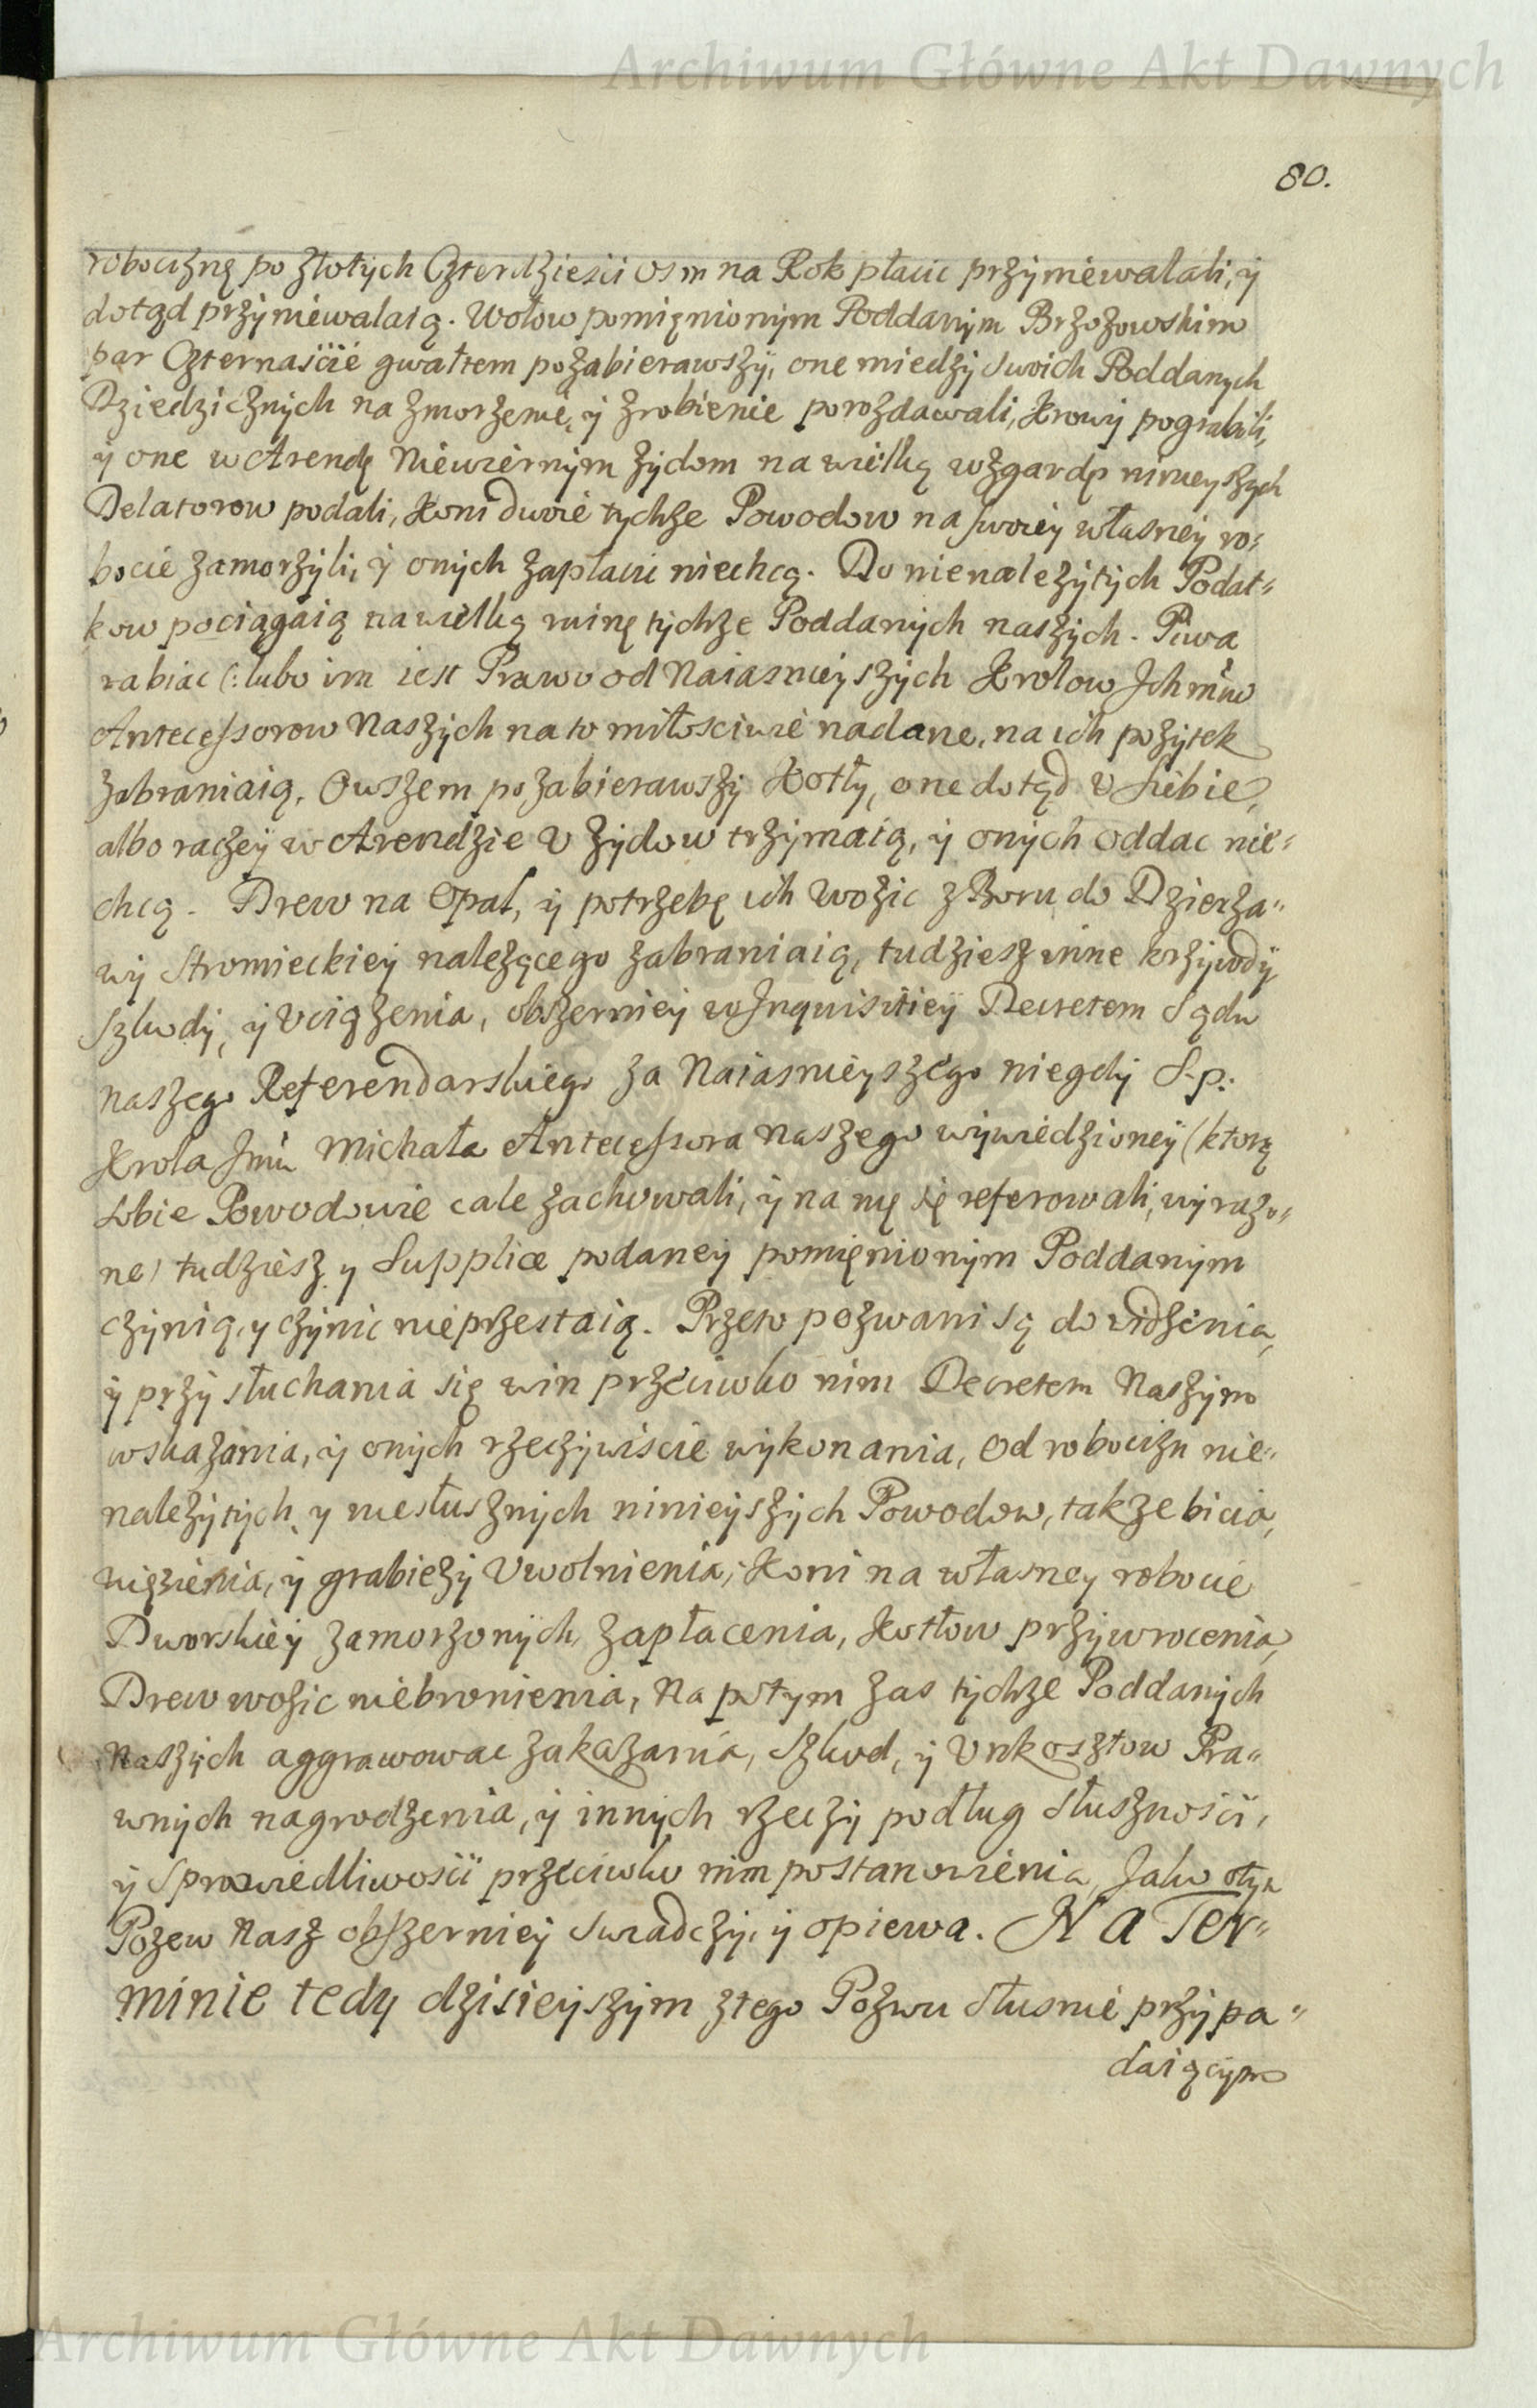 Archiwum Główne Akt Dawnych
80.
robociznę po złotych Czterdziesci osm na Rok płacic przyniewalali, y
dotąd przyniewalaią. Wołow pomięnionym Poddanym Brzozowskim
par Czternaście gwałtem pozabierawszy, one miedzy swoich Poddanych
Dziedzicznych na zmorzenie, y zrobienie porozdawali, Krowy pograbili,
y one w Arendę Niewiernym zydom na wielką wzgardę ninieyszych
Delatorow podali, Koni dwoie tychze Powodow na swoiey własney ro=
bocie zamorzyli, y onych zapłacic niechcą. Do nienalezytych Podat=
kow pociągaią na wielką ruinę tychze Poddanych naszych. Piwa
rabiac (: lubo im iest Prawo od Naiasnieyszych Krolow Ichmśw
Antecessorow Naszych na to miłosciwie nadane, na ich pozytek
zabraniaią, Owszem pozabierawszy Kotły, one dotąd v siebie,
albo raczey w Arendzie v zydow trzymaią, y onych oddac nie=
chcą. Drew na Opał, y potrzebę ich wozic z Boru do Dzierza=
wy Stromieckiey nalezącego zabraniaią, tudziesz inne krzywdy
szkody, y vciązenia, obszerniey w Inquisitiey Decretem Sądu
naszego Referendarskiego za Naiasnieyszego niegdy S. p.
Krola Jmśi Michała Antecessora naszego wywiedzioney (ktorą
sobie Powodowie cale zachowali, y na nię się referowali, wyrazo=
ne) tudziesz y Supplice podaney pomięnionym Poddanym
czynią, y czynic nieprzestaią. Przeto pozwani są do widzenia,
y przysłuchania się win przeciwko nim Decretem Naszym
wskazania, y onych rzeczywiscie wykonania, Od robocizn nie=
nalezytych y niesłusznych ninieyszych Powodow, takze bicia,
więzienia, y grabiezy Vwolnienia, Koni na własney robocie
Dworskiey zamorzonych zapłacenia, Kotłow przywrocenia,
Drew wozic niebronienia, Na potym zas tychze Poddanych
Naszych aggrawowac zakazania, Szkod, y Vnkosztow Pra=
wnych nagrodzenia, y innych rzeczy podług słusznosci,
y Sprawiedliwosci przeciwko nim postanowienia, Jako o tym
Pozew Nasz obszerniey swiadczy, y opiewa. NA Ter=
minie tedy dzisieyszym z tego Pozwu słusnie przypa=
daiącym
Archiwum Główne Akt Dawnych